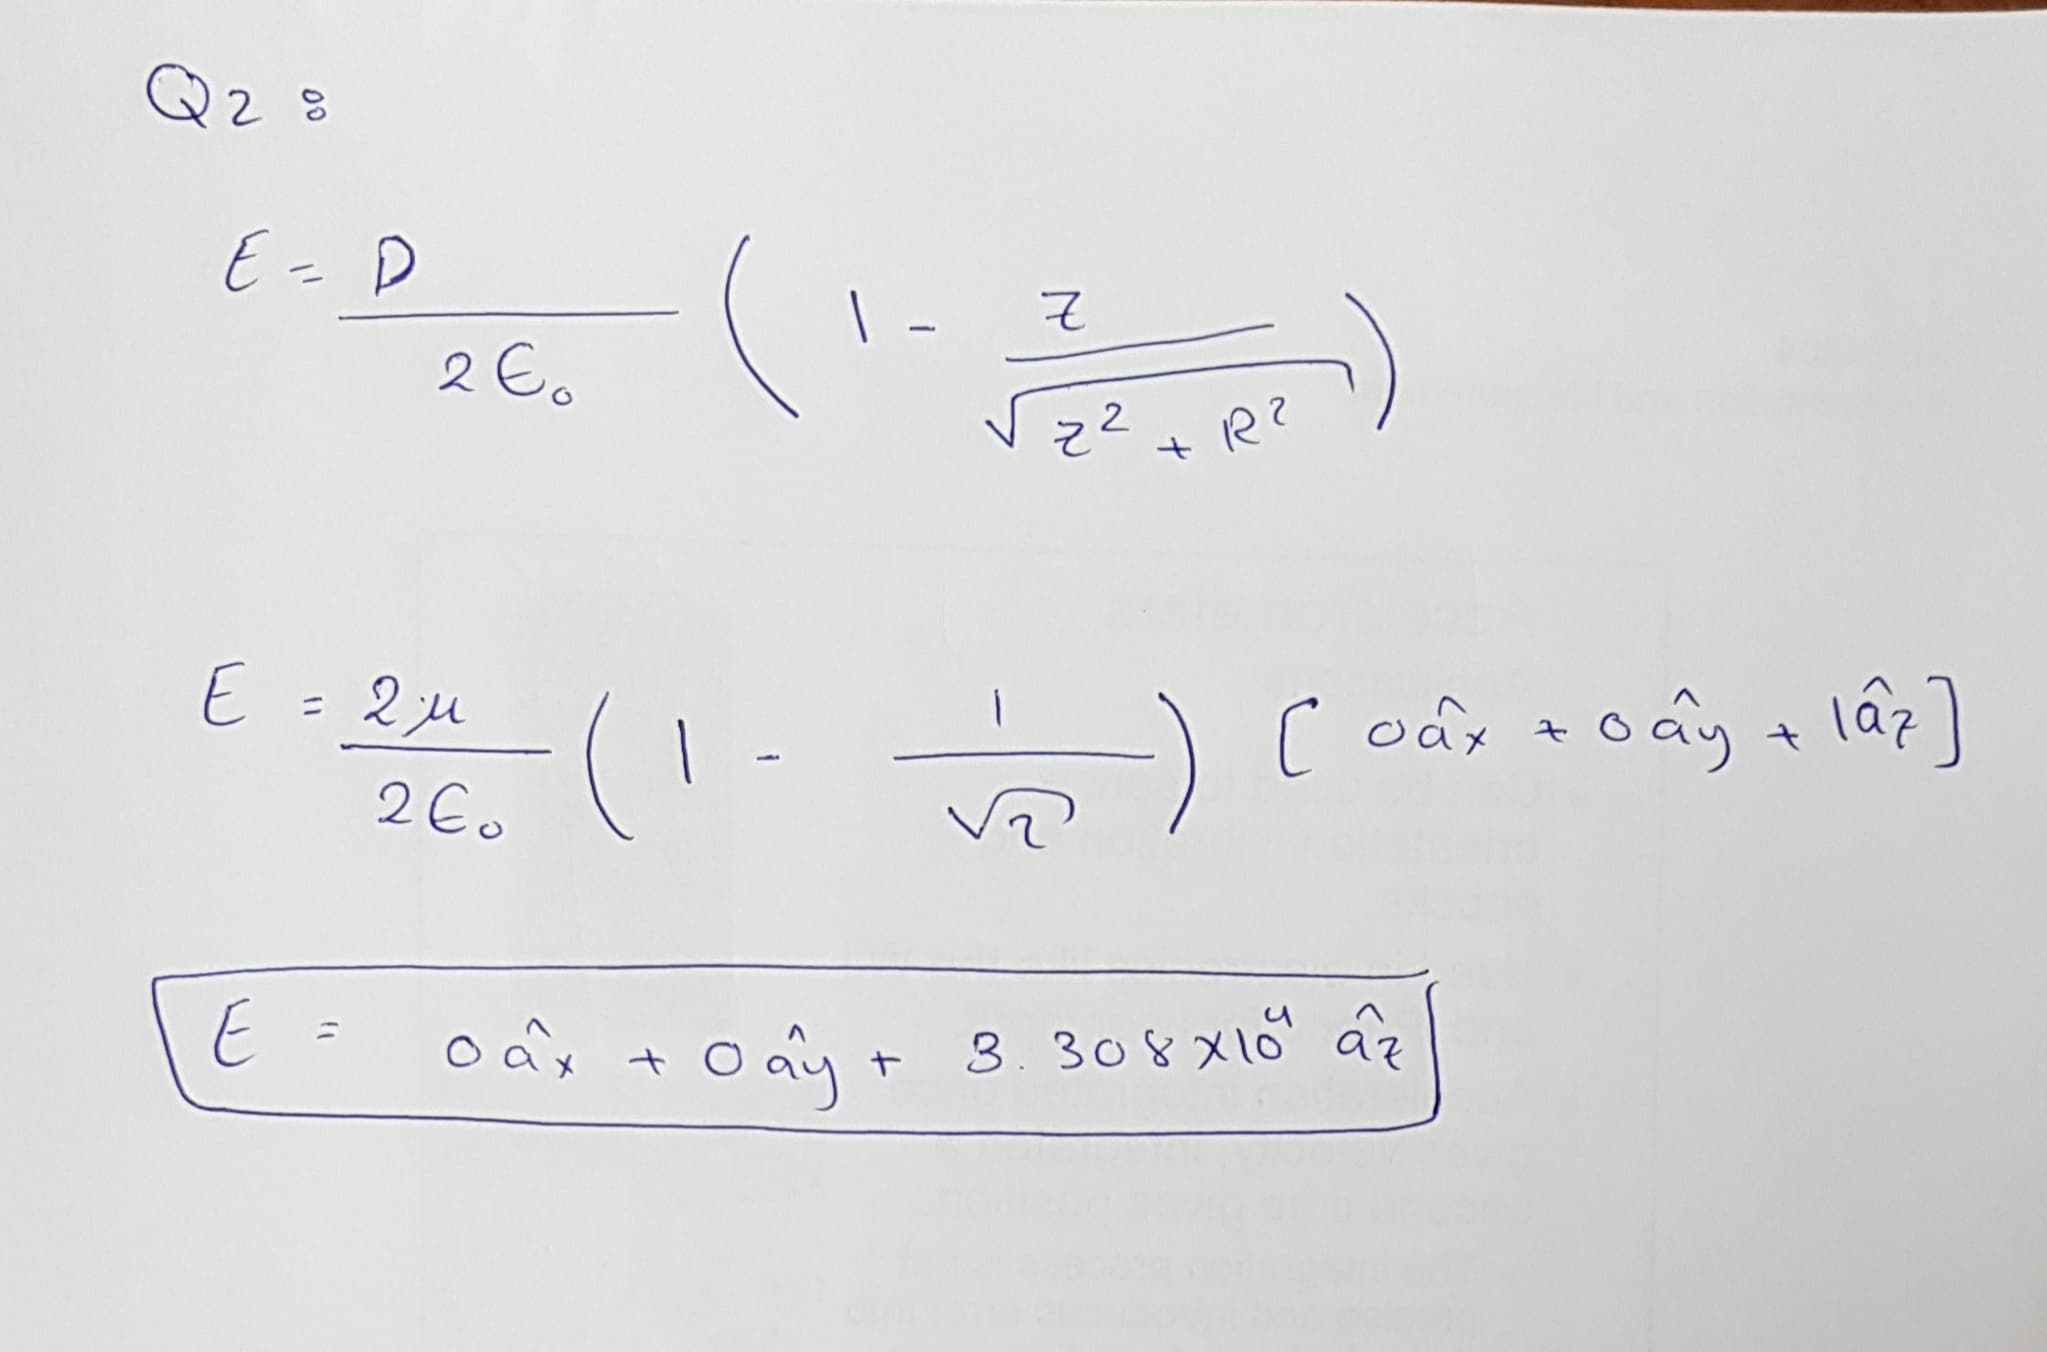 Q2 :
E = D / 2ϵ₀ ( 1 - z / √(z² + R²) )
E = 2μ / 2ϵ₀ ( 1 - 1 / √2 ) [ 0âx + 0ây + 1âz ]
E = 0âx + 0ây + 3.308 x10⁴ âz